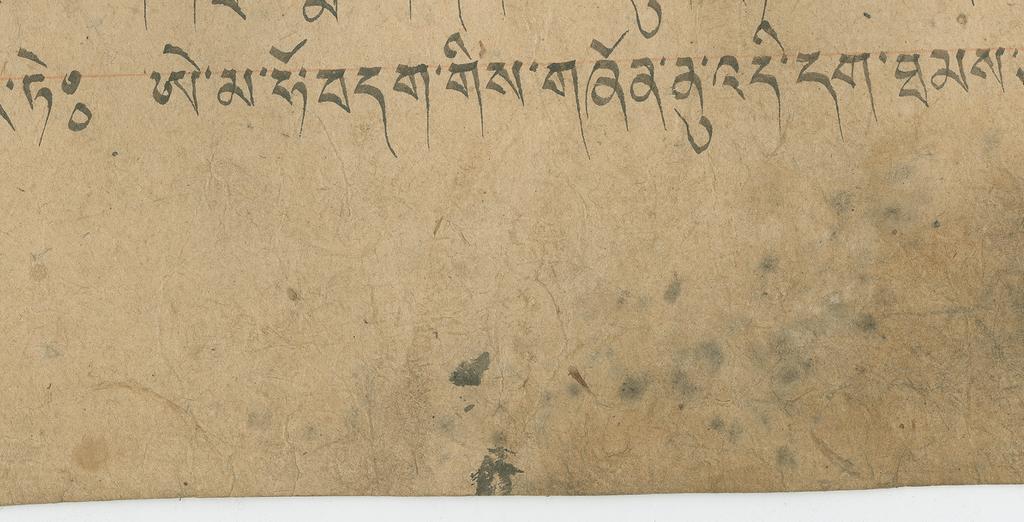 ཏེ༔ ཨེ་མ་ཧོ་བདག་གིས་གཞོན་ནུ་འདི་དག་ཐམས་